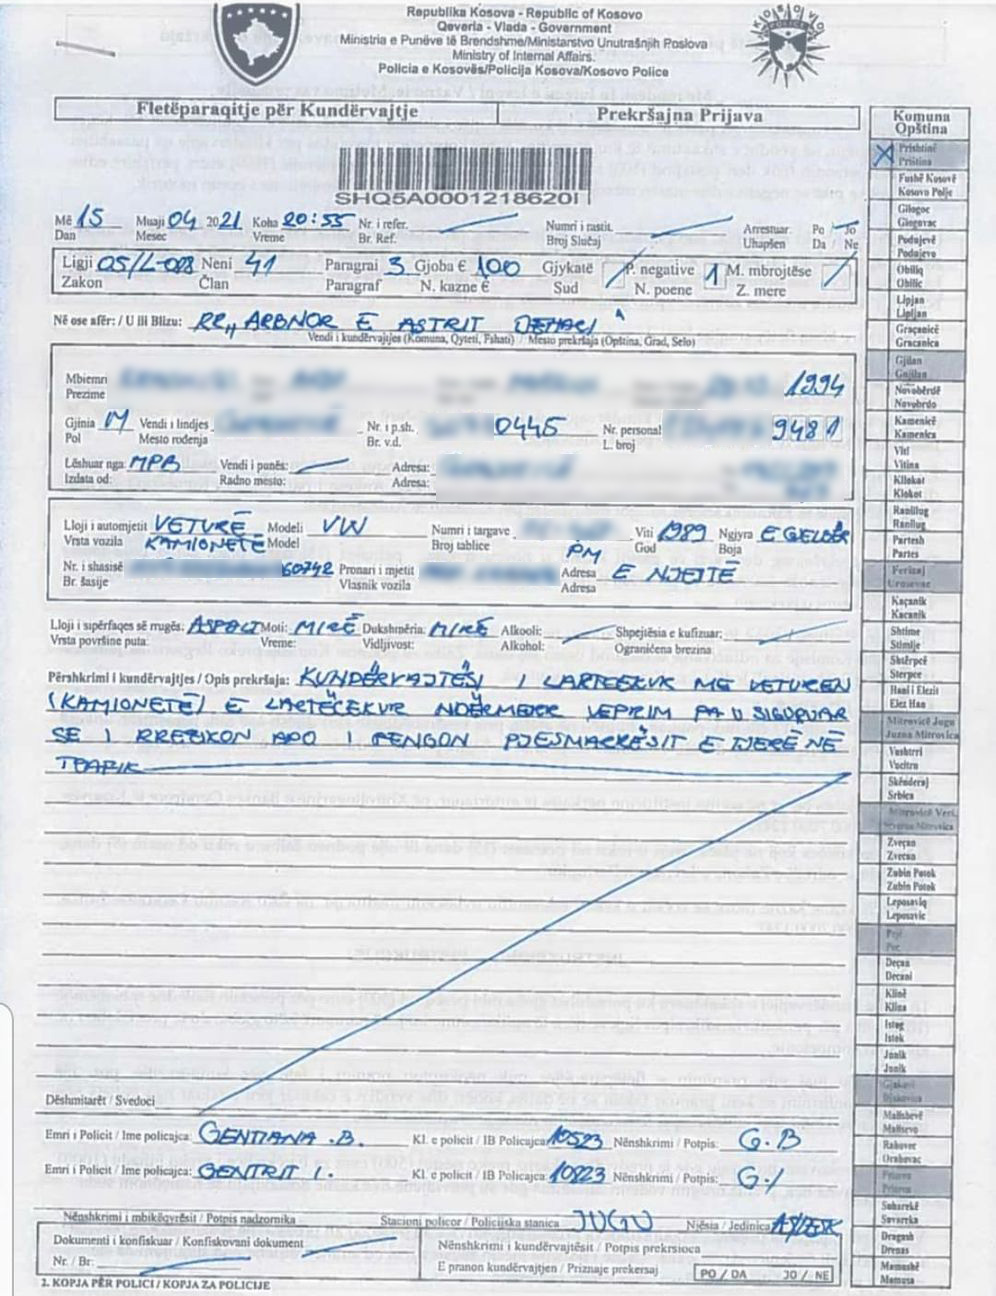 Republika Kosova - Republic of Kosovo
Qeveria - Vlada - Government
Ministria e Punëve të Brendshme/Ministarstvo Unutrašnjih Poslova
Ministry of Internal Affairs.
Policia e Kosovës/Policija Kosova/Kosovo Police
Fletëparaqitje për Kundërvajtje Prekršajna Prijava
SHQ5A0001218620I
Më 15 Muaji 04 2021 Koha 20:55 Nr. i refer. Numri i rastit. Arrestuar Po Jo
Dan Mesec Vreme Br. Ref. Broj Slučaj Uhapšen Da / Ne
Ligji 05/L-088 Neni 41 Paragrai 3 Gjoba € 100 Gjykatë P. negative 1 M. mbrojtëse
Zakon Član Paragraf N. kazne € Sud N. poene Z. mere
Në ose afër: / U ili Blizu: RR,, ARBNOR E ASTRIT DEHARI
Vendi i kundërvajtjes (Komuna, Qyteti, Fshati) / Mesto prekršaja (Opština, Grad, Selo)
Mbiemri 1994
Prezime
Gjinia M Vendi i lindjes Nr. i p.sh. 0445 Nr. personal 9481
Pol Mesto rođenja Br. v.d. L. broj
Lëshuar nga: MPB Vendi i punës: Adresa:
Izdata od: Radno mesto: Adresa:
Lloji i automjetit VETURË Modeli VW Numri i targave Viti 1989 Ngjyra
Vrsta vozila KAMIONETË Model Broj tablice PM God Boja
Nr. i shasisë 60742 Pronari i mjetit Adresa E NJEJTË
Br. šasije Vlasnik vozila Adresa
Lloji i sipërfaqes së rrugës: ASPALT Moti: MIRË Dukshmëria: MIRË Alkooli: Shpejtësia e kufizuar:
Vrsta površine puta: Vreme: Vidljivost: Alkohol: Ograničena brezina
Përshkrimi i kundërvajtjes / Opis prekršaja: KUNDËRVAJTËSI I LARTCEKUR ME VETUREN
(KAMIONETË) E LARTËCEKUR NDËRMERR VEPRIM PA U SIGURUAR
SE I RREZIKON APO I PENGON PJESMARRËSIT E TJERË NË
TRAFIK
Dëshmitarët / Svedoci
Emri i Policit / Ime policajca: GENTIANA .B. Kl. e policit / IB Policajca 10523 Nënshkrimi / Potpis: G.B
Emri i Policit / Ime policajca: GENTRIT I. Kl. e policit / IB Policajca 10823 Nënshkrimi / Potpis: G.I
Nënshkrimi i mbikëqyrësit / Potpis nadzornika Stacioni policor / Policijska stanica JUGU Njësia / Jedinica
Dokumenti i konfiskuar / Konfiskovani dokument Nënshkrimi i kundërvajtësit / Potpis prekrsioca
Nr. / Br: E pranon kundërvajtjen / Priznaje prekersaj PO / DA JO / NE
2. KOPJA PËR POLICI / KOPJA ZA POLICIJE
Komuna
Opština
Prishtinë
Priština
Fushë Kosovë
Kosovo Polje
Gllogoc
Glogovac
Podujevë
Podujevo
Obiliq
Obilic
Lipjan
Lipljan
Graçanicë
Gracanica
Gjilan
Gnjilan
Novobërdë
Novobrdo
Kamenicë
Kamenica
Viti
Vitina
Kllokot
Klokot
Ranillug
Ranllug
Partesh
Partes
Ferizaj
Urosevac
Kaçanik
Kacanik
Shtime
Stimlje
Shtërpcë
Sterpce
Hani i Elezit
Elez Han
Mitrovicë Jugu
Juzna Mitrovica
Vushtrri
Vucitrn
Skënderaj
Srbica
Mitrovicë Veri.
Zveçan
Zvecan
Zubin Potok
Zubin Potok
Leposaviq
Leposavic
Pejë
Pec
Deçan
Decani
Klinë
Klina
Istog
Istok
Junik
Junik
Gjakovë
Djakovica
Malishevë
Malisevo
Rahovec
Orahovac
Prizren
Prizren
Suharekë
Suvareka
Dragash
Drenas
Mamushë
Mamusa